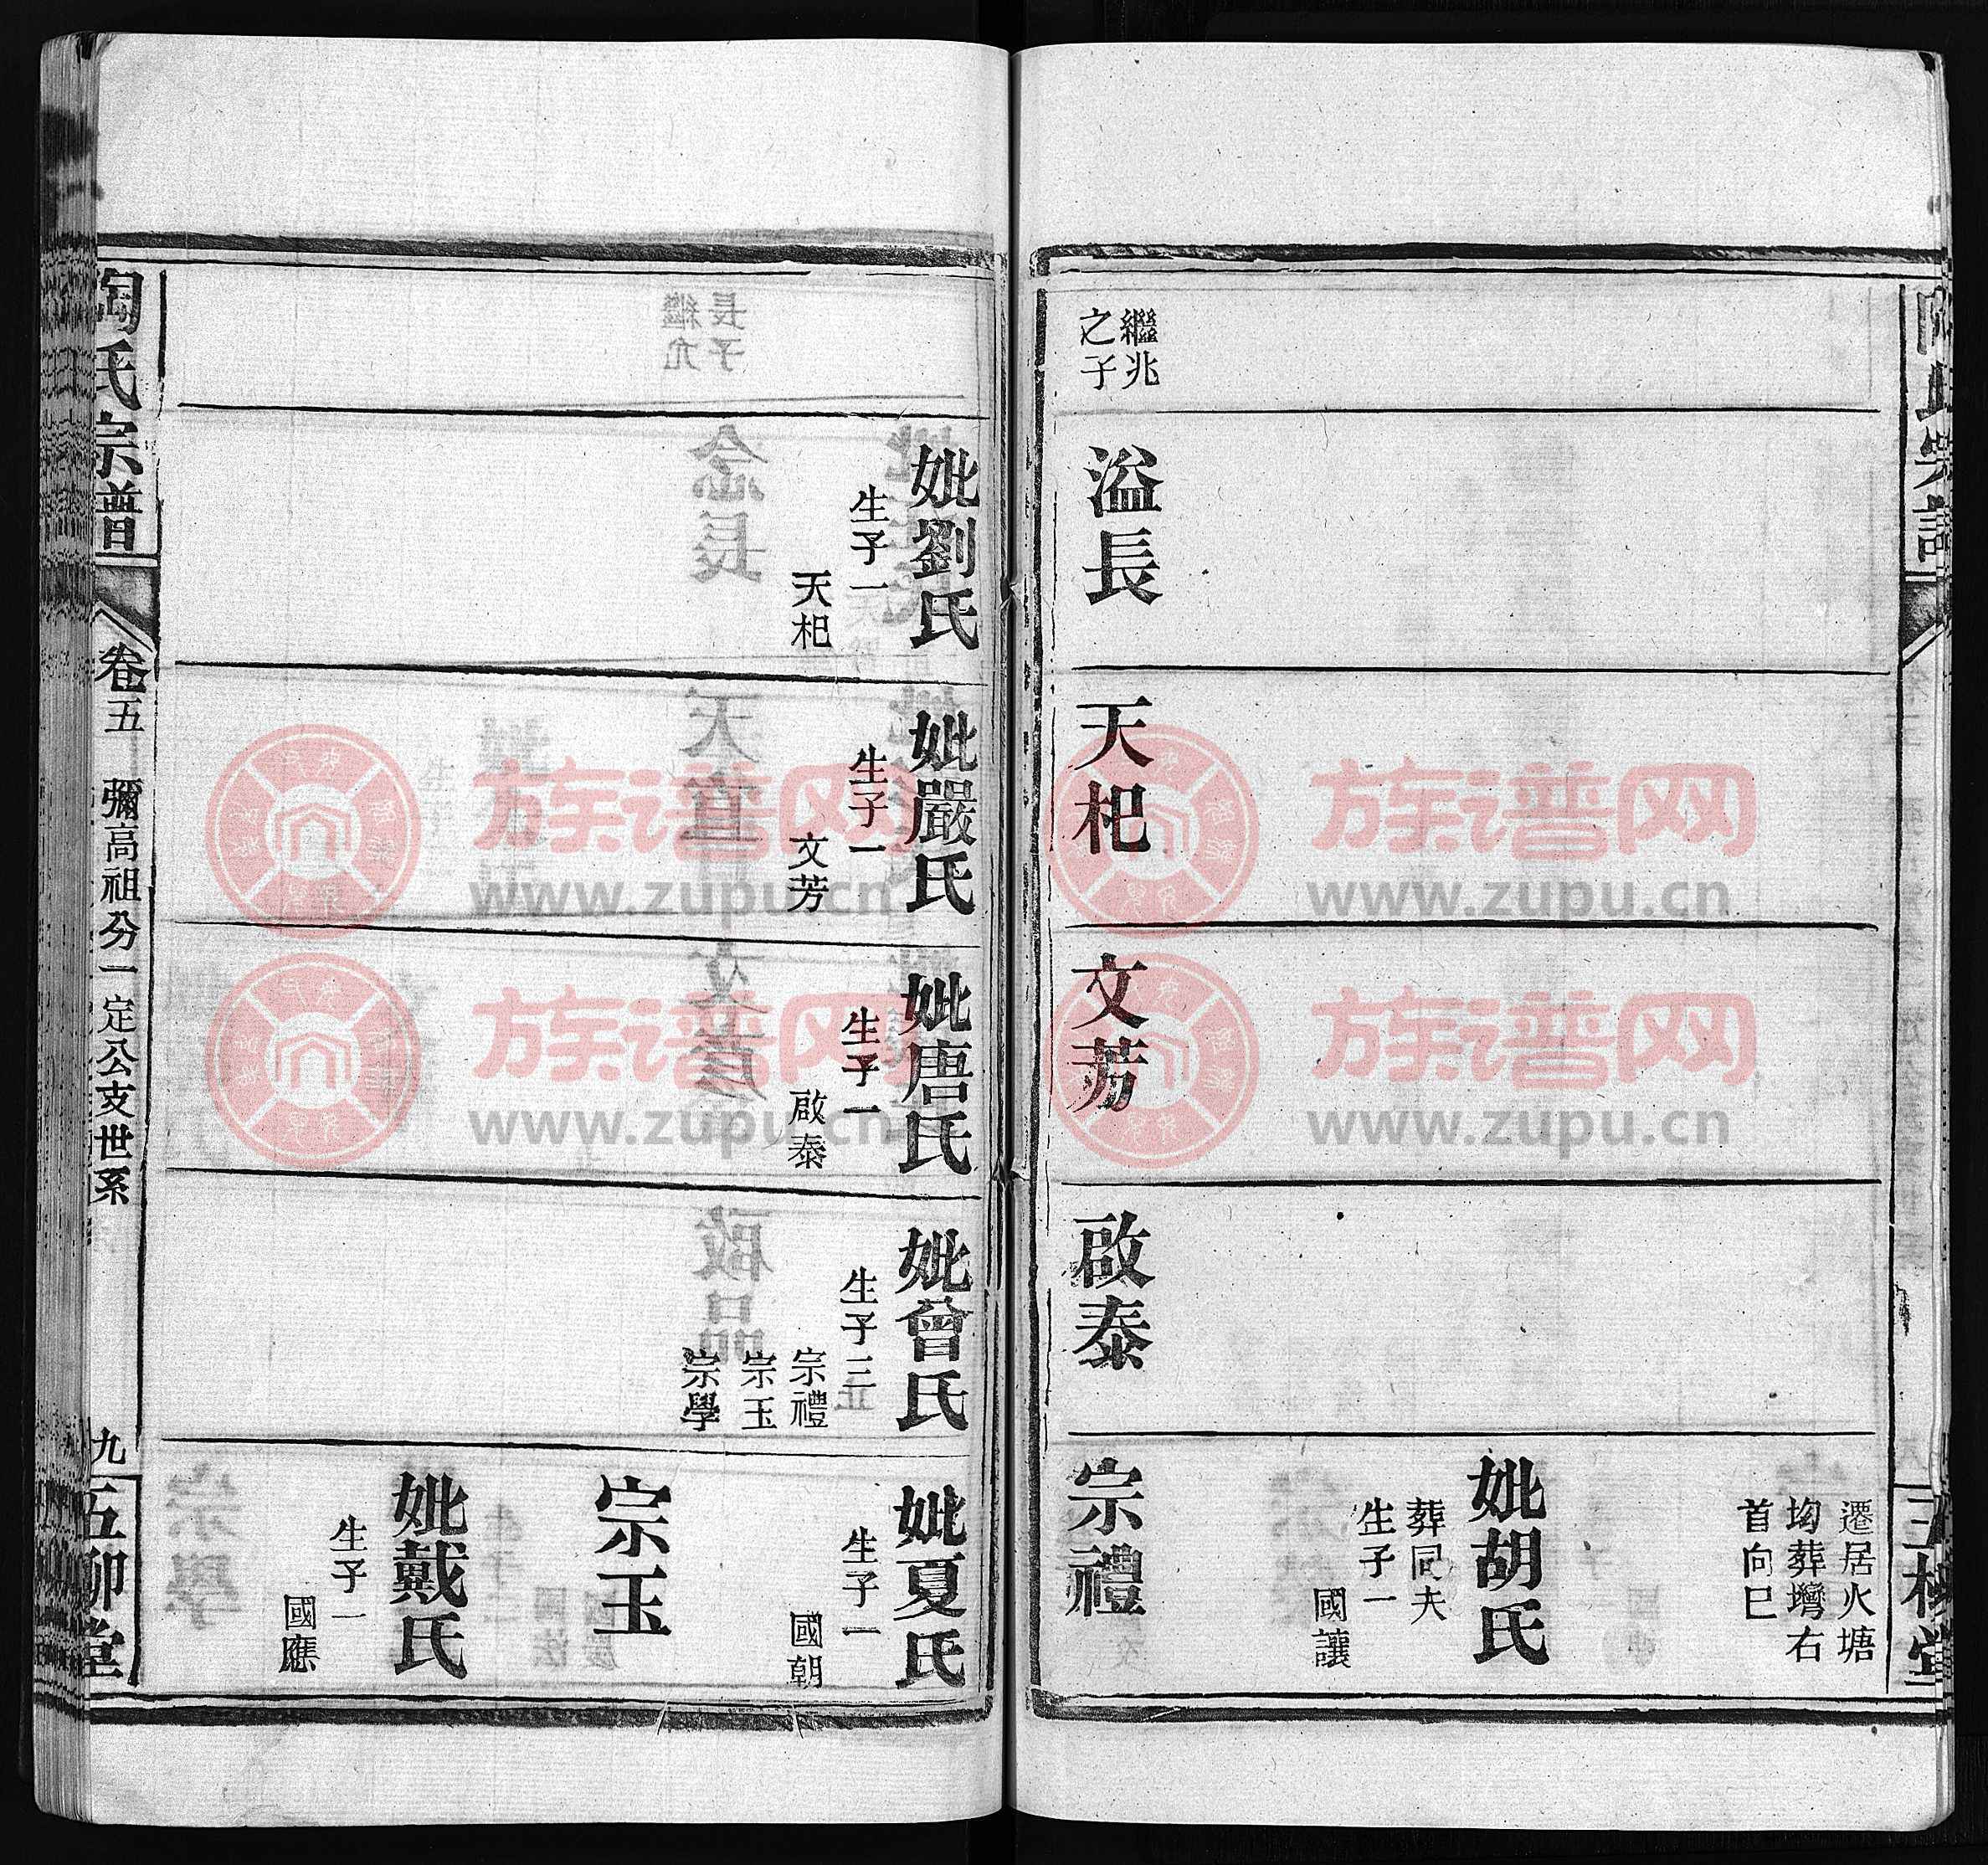 陶氏宗譜
五柳堂
繼兆
之子
溢長
天杞
文芳
啟泰
遷居火塘
坳葬塆右
首向巳
妣胡氏
葬同夫
生子一
國讓
宗禮
妣劉氏
生子一
天杞
妣嚴氏
生子一
文芳
妣唐氏
生子一
啟泰
妣曾氏
生子三
宗禮
宗玉
宗學
妣夏氏
生子一
國朝
宗玉
妣戴氏
生子一
國應
陶氏宗譜
卷五
彌高祖分一定公支世系
九
五柳堂
族谱网
www.zupu.cn
族谱网
www.zupu.cn
族谱网
www.zupu.cn
族谱网
www.zupu.cn